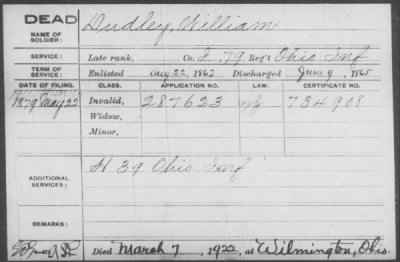 DEAD
NAME OF SOLDIER: Dudley, William
SERVICE: Late rank, Co. I, 79 Reg't Ohio Inf
TERM OF SERVICE: Enlisted Aug 22, 1862 Discharged June 9, 1865
DATE OF FILING. CLASS. APPLICATION NO. LAW. CERTIFICATE NO.
1879 May 22 Invalid, 287623 734908
Widow,
Minor,
ADDITIONAL SERVICES: H 39 Ohio Inf
REMARKS:
Died March 7, 1922, at Wilmington, Ohio.